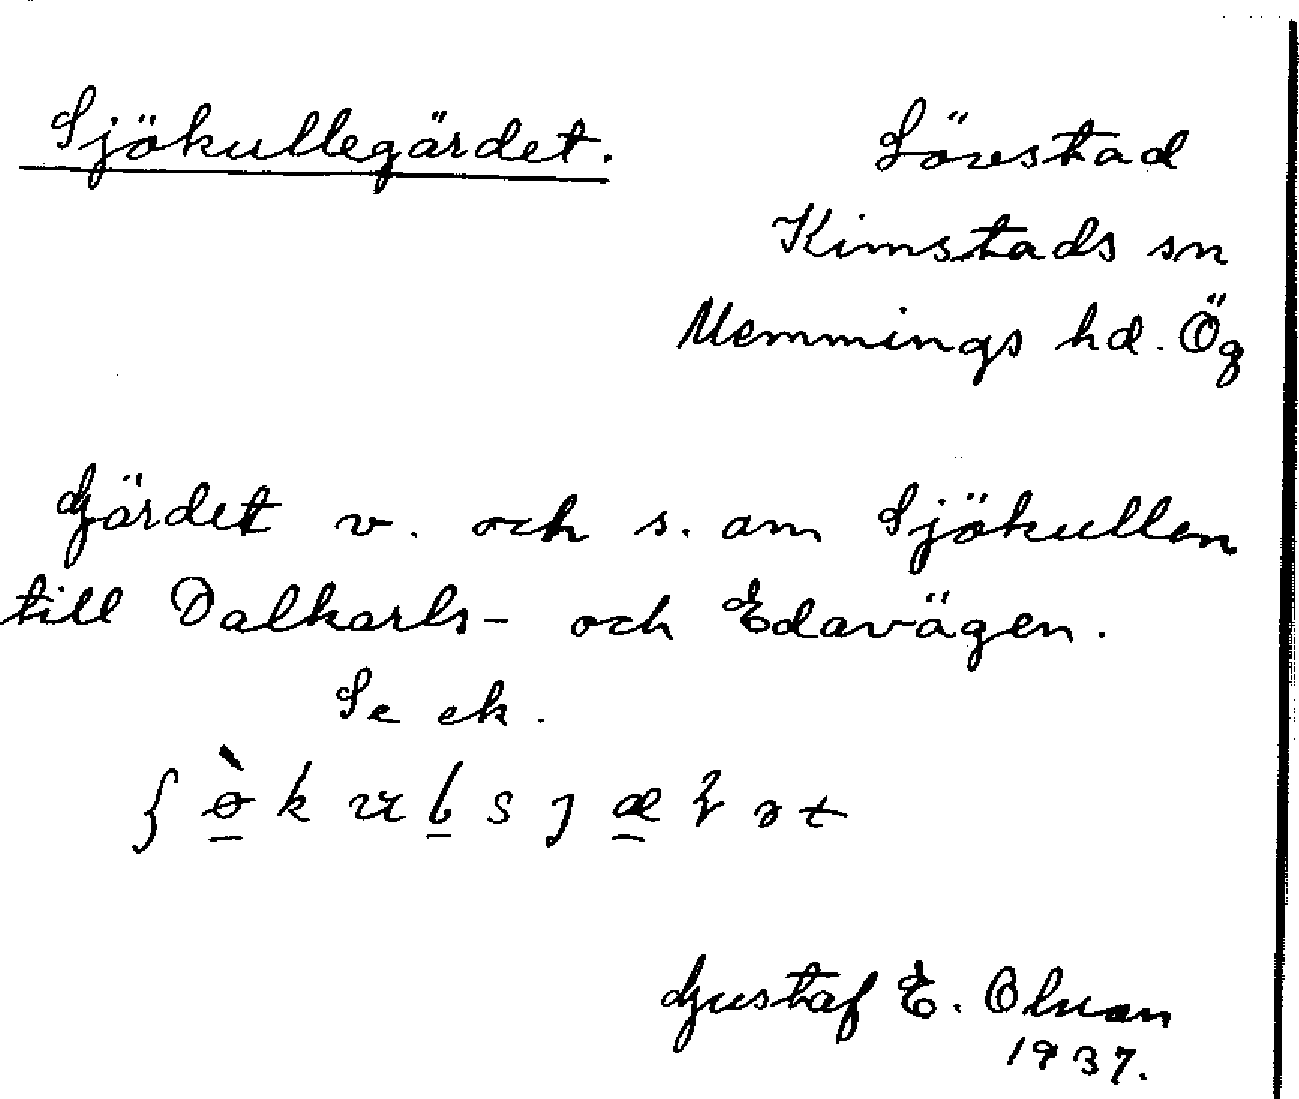 Sjökullegärdet.
Lövestad
Kimstads sn
Memmings hd. Ög
Gärdet v. och s. om Sjökullen
till Dalkarls- och Edavägen.
Se ek.
Gustaf E. Olsson
1937.